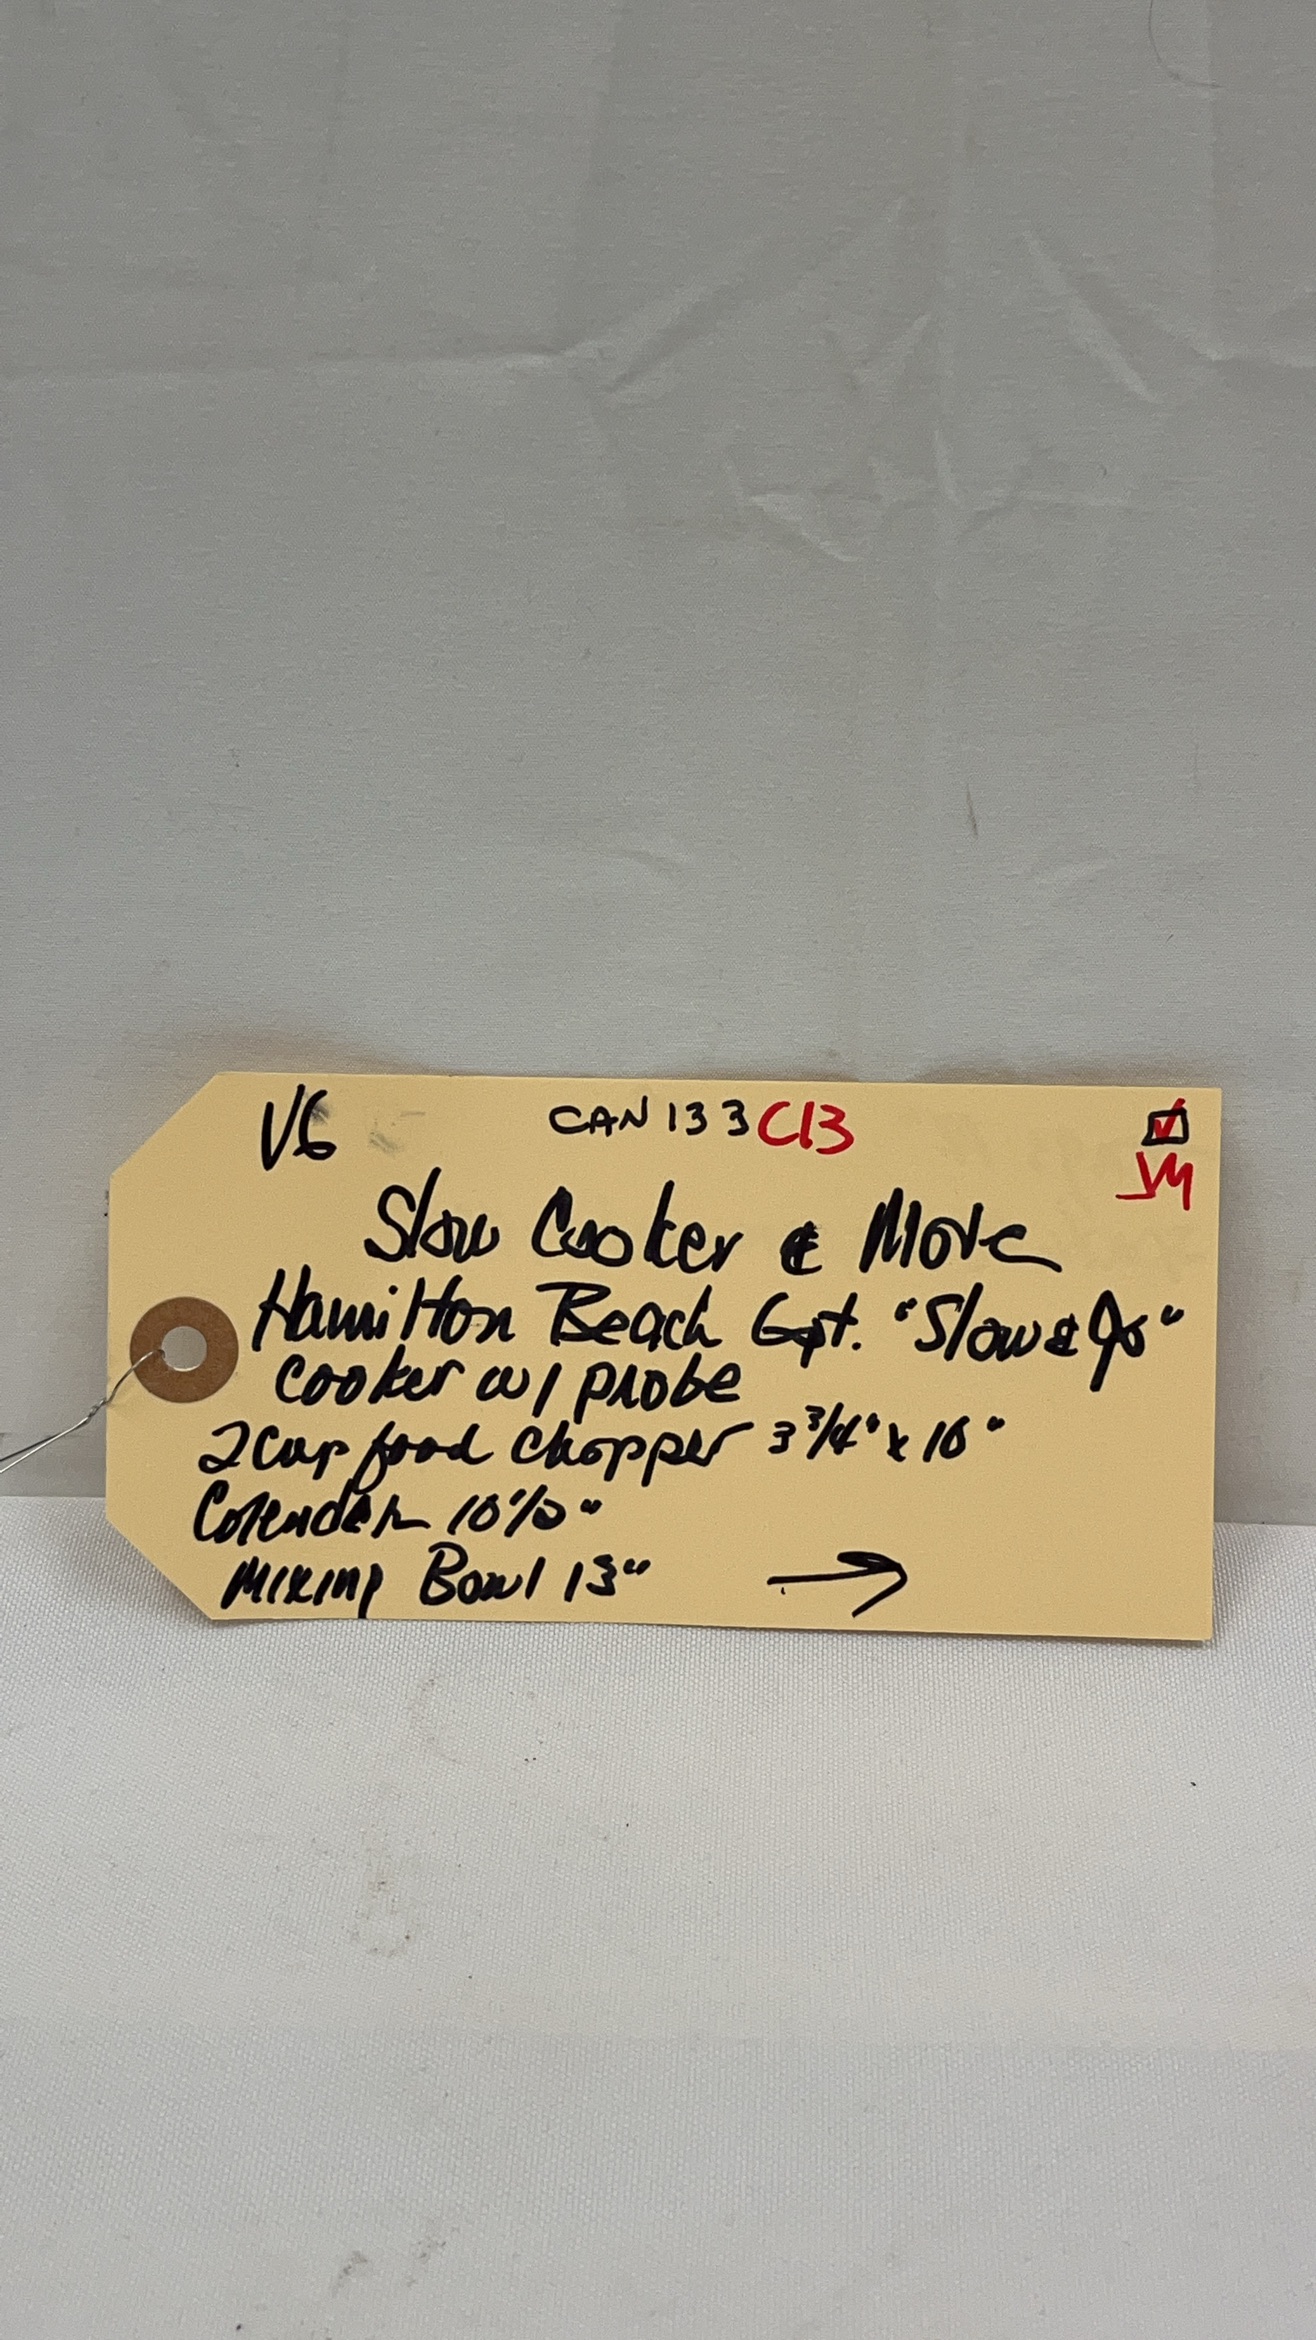 V6 CAN 133 C13 ☑
JM
Slow Cooker & More
Hamilton Beach 6qt. "Slow & Go"
cooker w/ probe
2 cup food chopper 3 3/4" x 10"
Colender 10 1/2"
Mixing Bowl 13" →